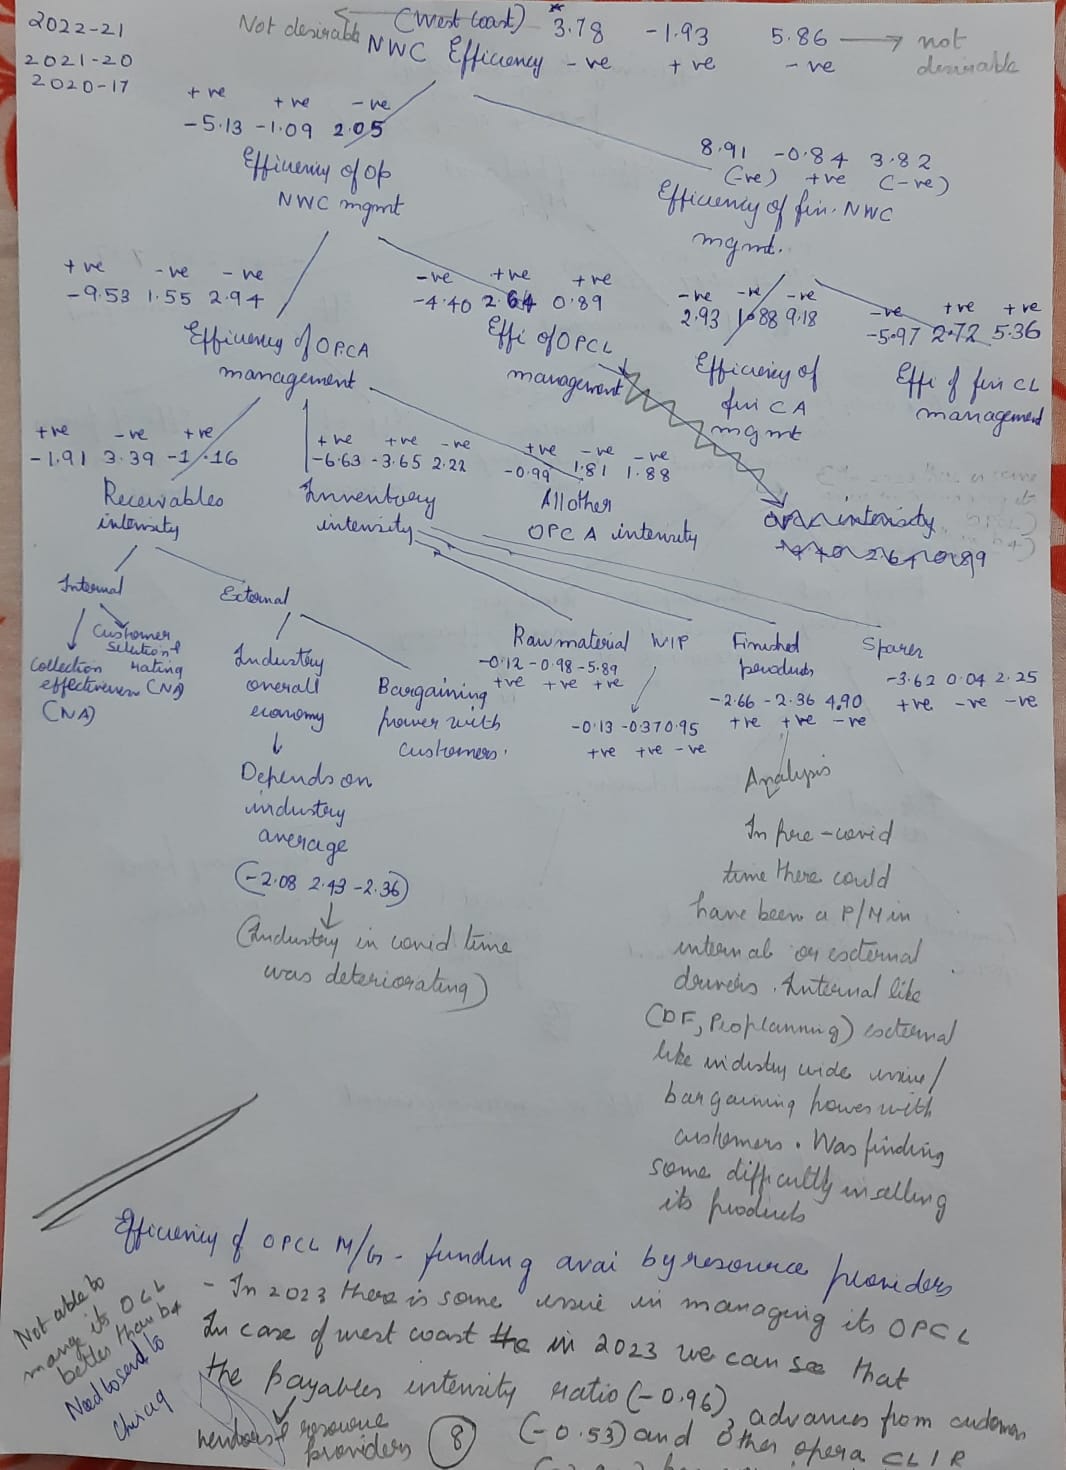 2022-21
2021-20
2020-17
Not desirable
(West Coast) 3.78 -1.93 5.86 → not desirable
NWC Efficiency -ve +ve -ve
+ve +ve -ve
-5.13 -1.09 2.05
Efficiency of Op
NWC mgmt
8.91 -0.84 3.82
(-ve) +ve (-ve)
Efficiency of fin. NWC
mgmt.
+ve -ve -ve
-9.53 1.55 2.94
Efficiency of OPCA
management
-ve +ve +ve
-4.40 2.64 0.89
Effi of OPCL
management
-ve -ve -ve
2.93 1.88 9.18
Efficiency of
fin CA
mgmt
-ve +ve +ve
-5.97 2.72 5.36
Effi of fin CL
management
+ve -ve +ve
-1.91 3.39 -1.16
Receivables
intensity
+ve +ve -ve
-6.63 -3.65 2.22
Inventory
intensity
+ve -ve -ve
-0.99 1.81 1.88
All other
OPCA intensity
intensity
2.64 0.89
Internal
Customer
Selection &
rating
(NA)
Collection
effectiveness
(NA)
External
Industry
overall
economy
Depends on
industry
average
(-2.08 2.43 -2.36)
(Industry in covid time
was deteriorating)
Bargaining
power with
customers.
Raw material
-0.12 -0.98 -5.89
+ve +ve +ve
WIP
-0.13 -0.37 0.95
+ve +ve -ve
Finished
products
-2.66 -2.36 4.90
+ve +ve -ve
Spares
-3.62 0.04 2.25
+ve -ve -ve
Analysis
In pre-covid
time there could
have been a P/M in
internal or external
drivers. Internal like
(DF, Pro planning) external
like industry wide issue/
bargaining power with
customers. Was finding
some difficultly in selling
its products
Efficiency of OPCL M/G - funding avai by resource providers
- In 2023 there is some issue in managing its OPCL
In case of west coast the in 2023 we can see that
the payables intensity ratio (-0.96), advances from customers
(-0.53) and other opera CL IR
Not able to
manage its OCL
better than b4
Need to send to
vendors & resource
providers
8